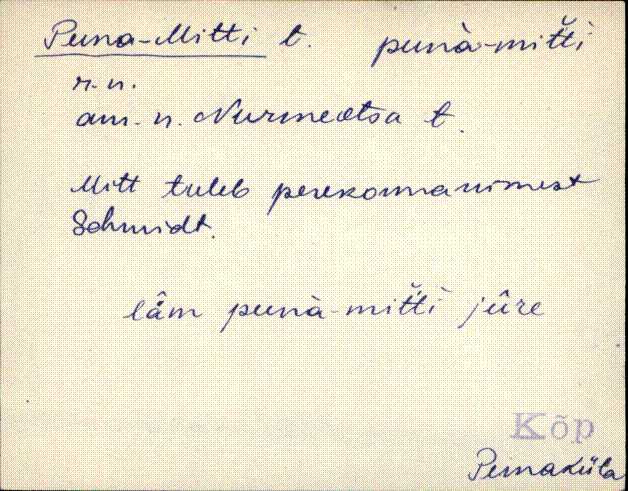 Puna-Mitti t. punà-mit̆t̆i
r.n.
am. n. Nurmeotsa t.
Mitt tuleb perekonnanimest
Schmidt.
lâm punà-mit̆t̆i jûre
Kõp
Pernaküla